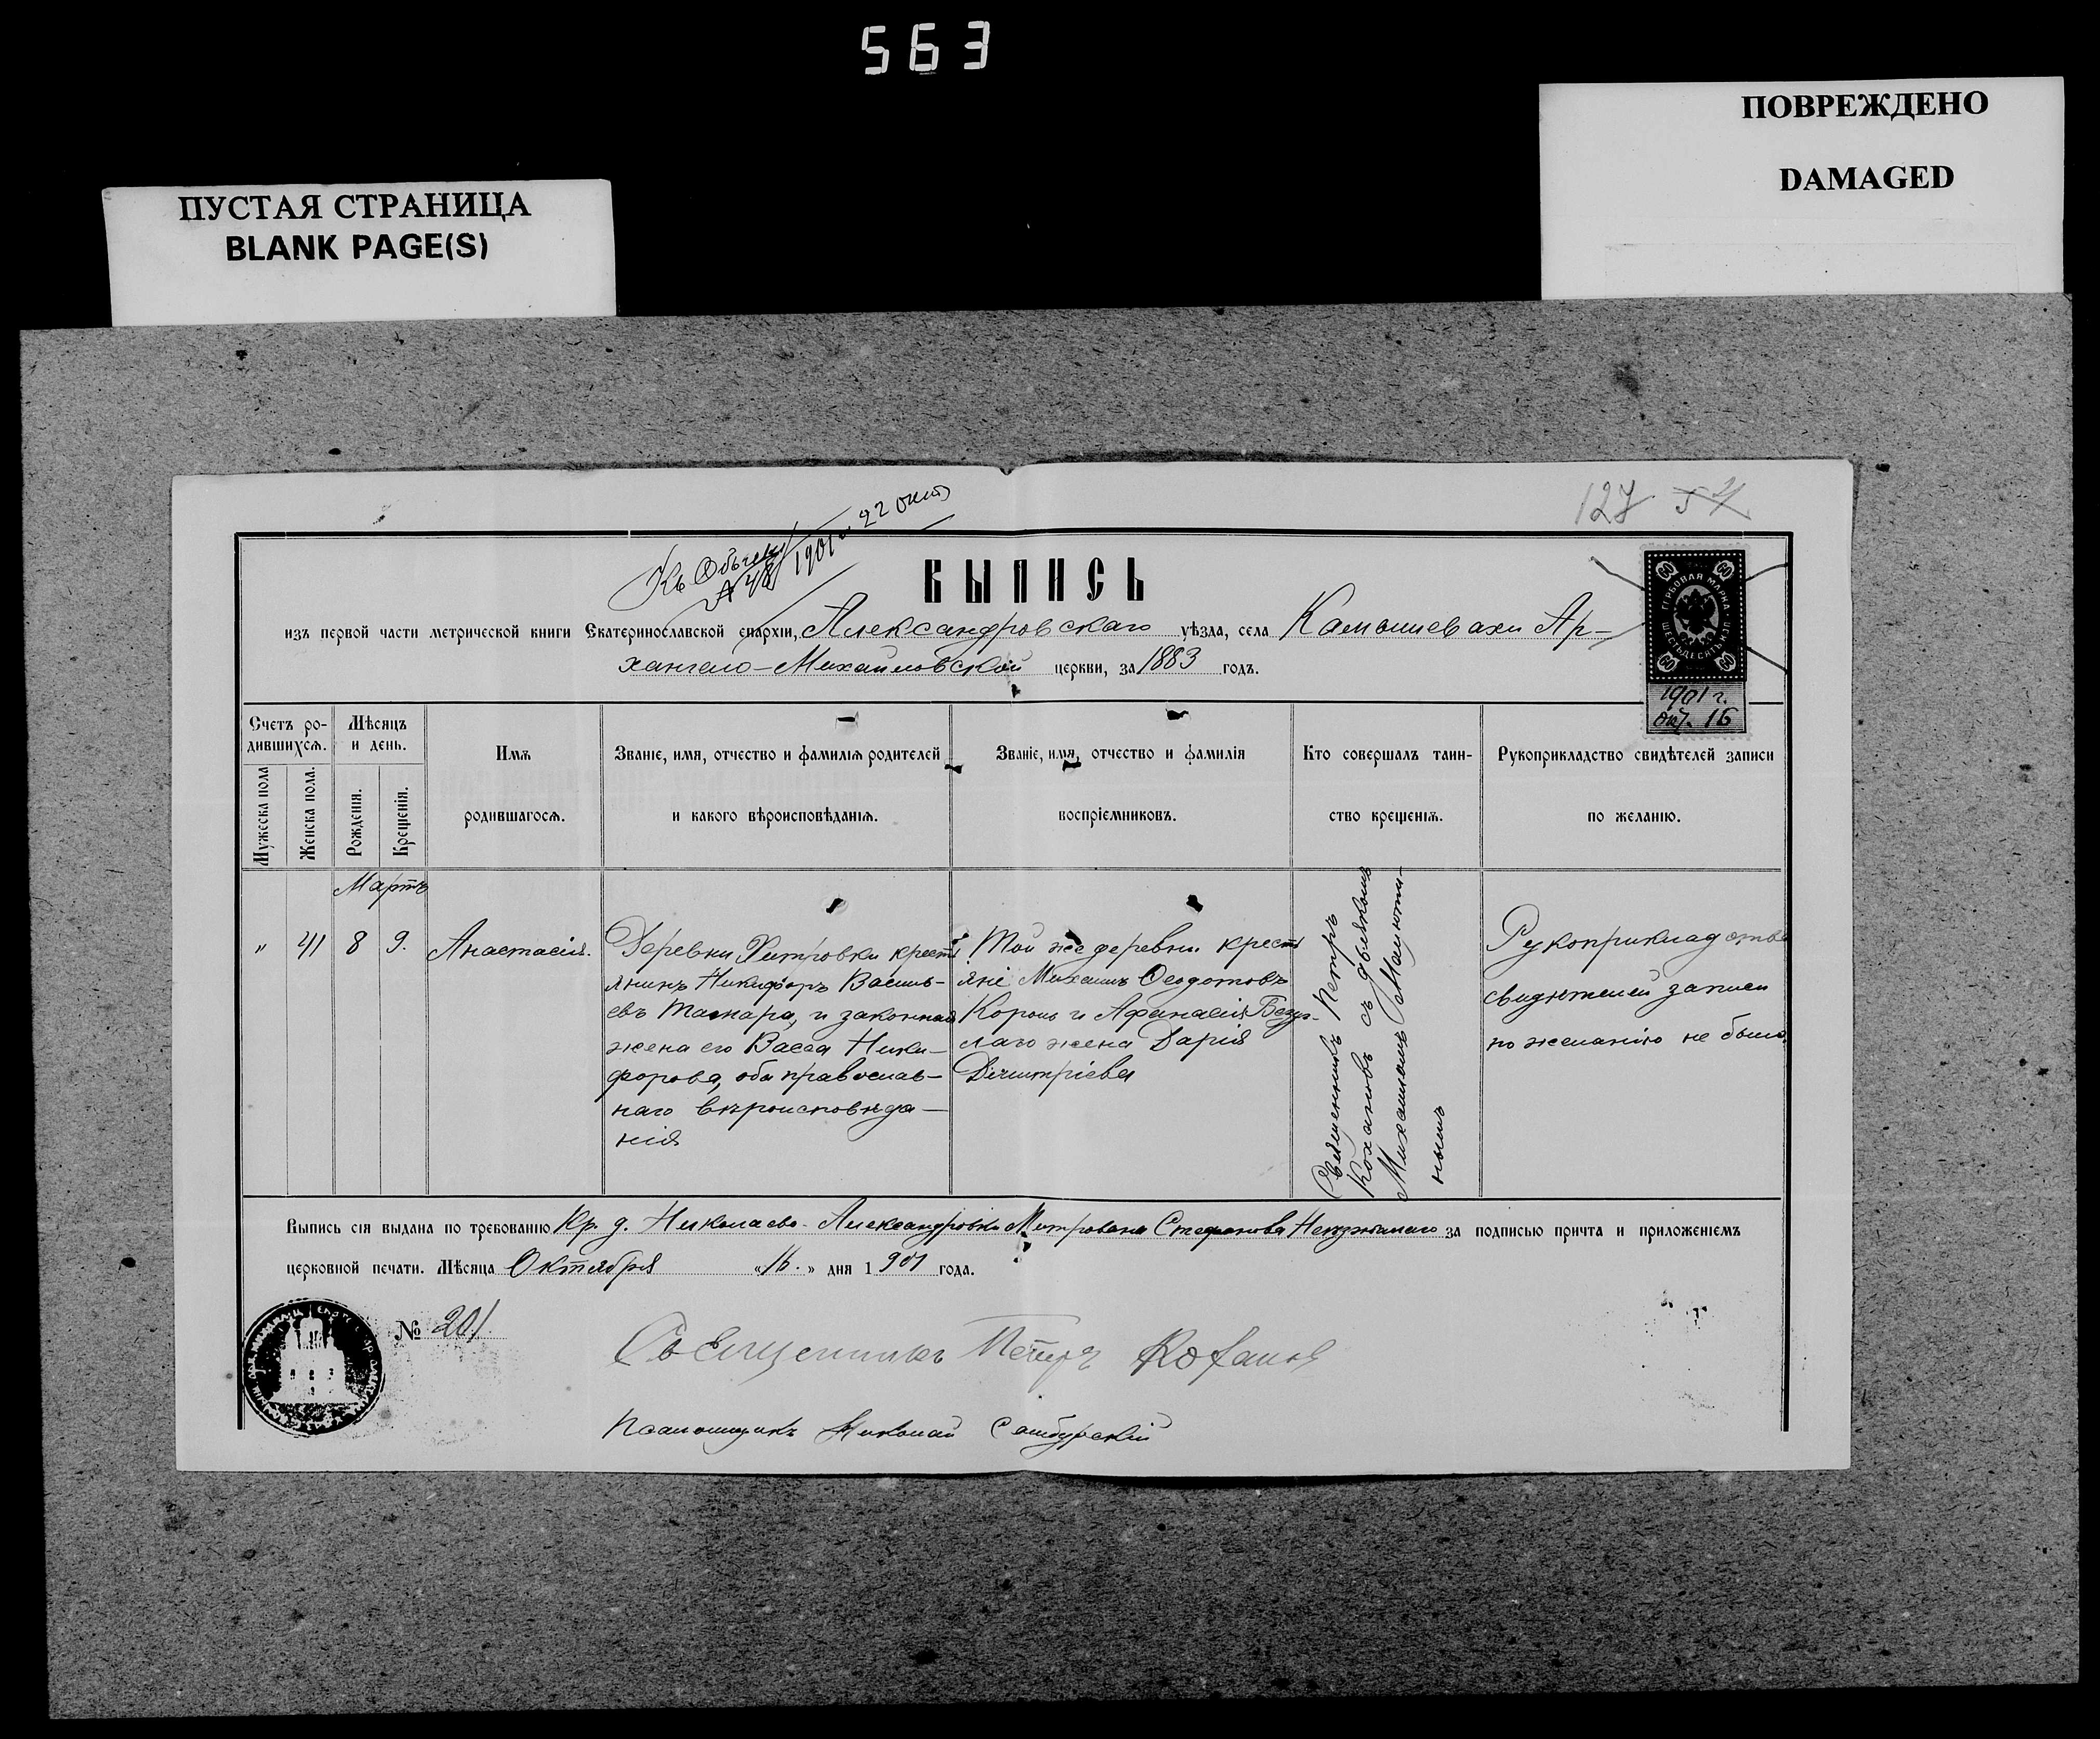 563
ПОВРЕЖДЕНО
DAMAGED
ПУСТАЯ СТРАНИЦА
BLANK PAGE(S)
127 54
Къ
№ 48 1901 г. 22 окт
ВЫПИСЬ
изъ первой части метрической книги Екатеринославской епархіи, Александровскаго уѣзда, села Камышевахи Ар-
хангело-Михайловской церкви, за 1883 годъ.
ГЕРБОВАЯ МАРКА ЦѢНА ШЕСТЬДЕСЯТЪ
60 60
60 60
1901 г.
окт. 16
Счетъ ро-
дившихся.
Мужеска пола
Женска пола.
Мѣсяцъ
и день.
Рожденія.
Крещенія.
Имя
родившагося.
Званіе, имя, отчество и фамилія родителей
и какого вѣроисповѣданія.
Званіе, имя, отчество и фамилія
воспріемниковъ.
Кто совершалъ таин-
ство крещенія.
Рукоприкладство свидѣтелей записи
по желанію.
Мартъ
" 41 8 9. Анастасія.
Деревни Петровки кресть
янинъ Никифоръ Василь-
евъ и законная
жена его Васса Ники-
форова, оба православ-
наго вѣроисповѣда-
нія
Той же деревни кресть
яне Михаилъ Ѳеодотовъ
Король и Афанасія
жена Дарія
Димитріева
Священникъ Петръ
Кохановъ съ дьячкомъ
Михаиломъ
нымъ
Рукоприкладства
свидѣтелей записи
по желанію не было.
Выпись сія выдана по требованію Кр. д. Николаево-Александровки Митрофана Стефанова за подписью причта и приложеніемъ
церковной печати. Мѣсяца Октября «16.» дня 1901 года.
№ 201
Священникъ Петръ Коханов
Псаломщикъ Николай Самбурскій